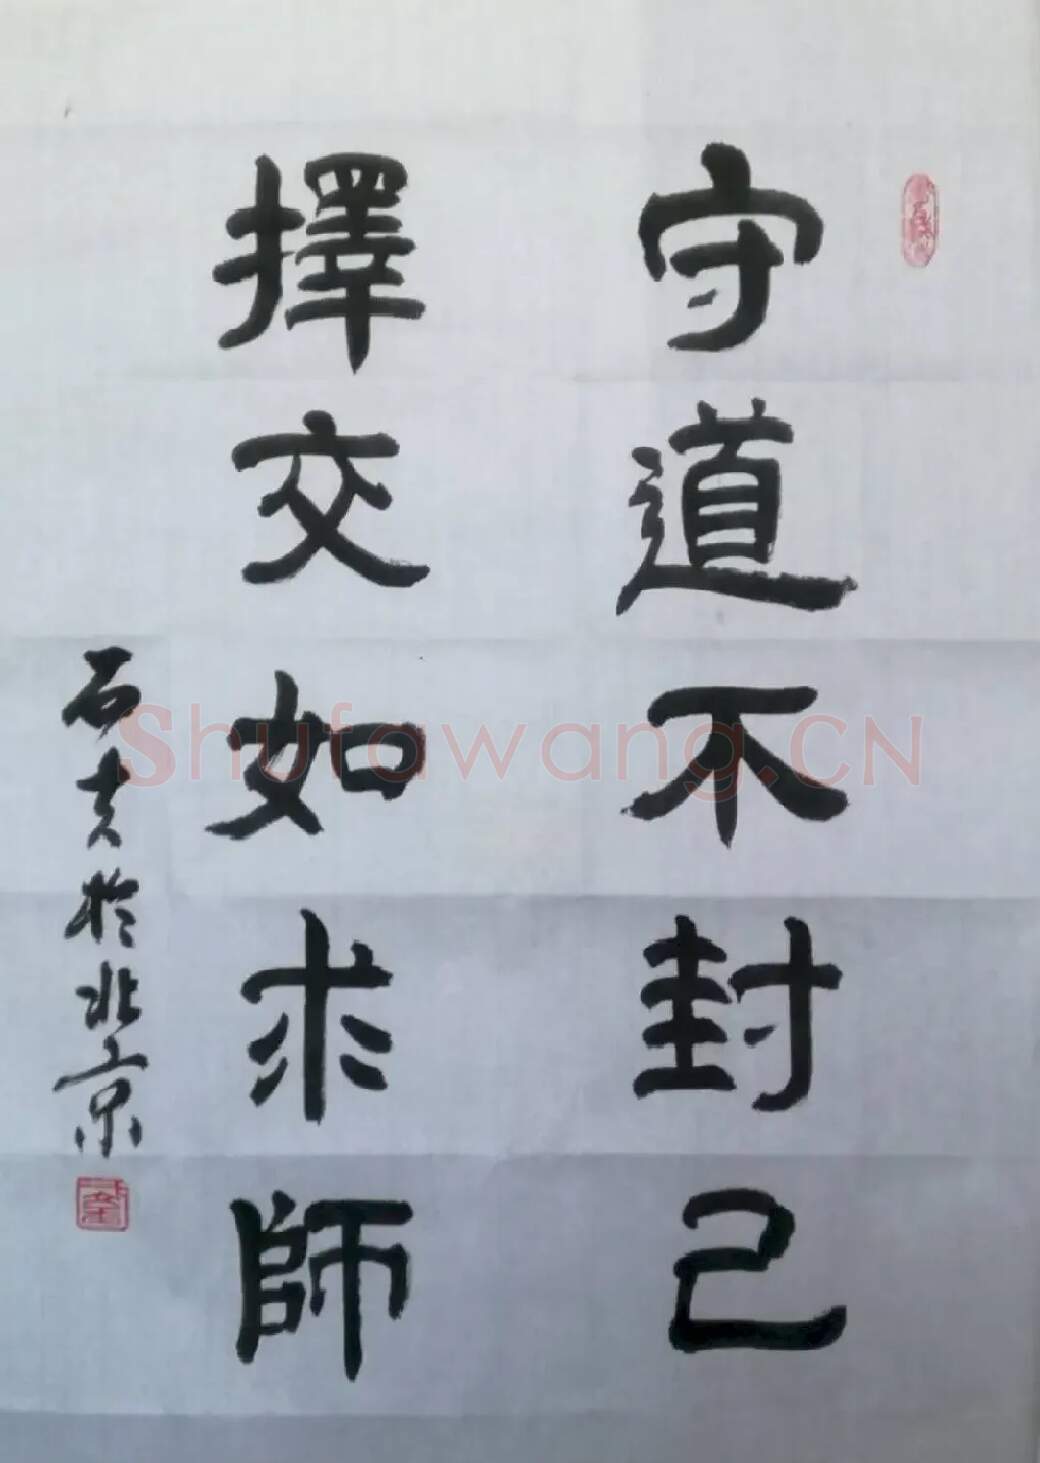 守道不封己
擇交如求師
石夫於北京
Shufawang.CN